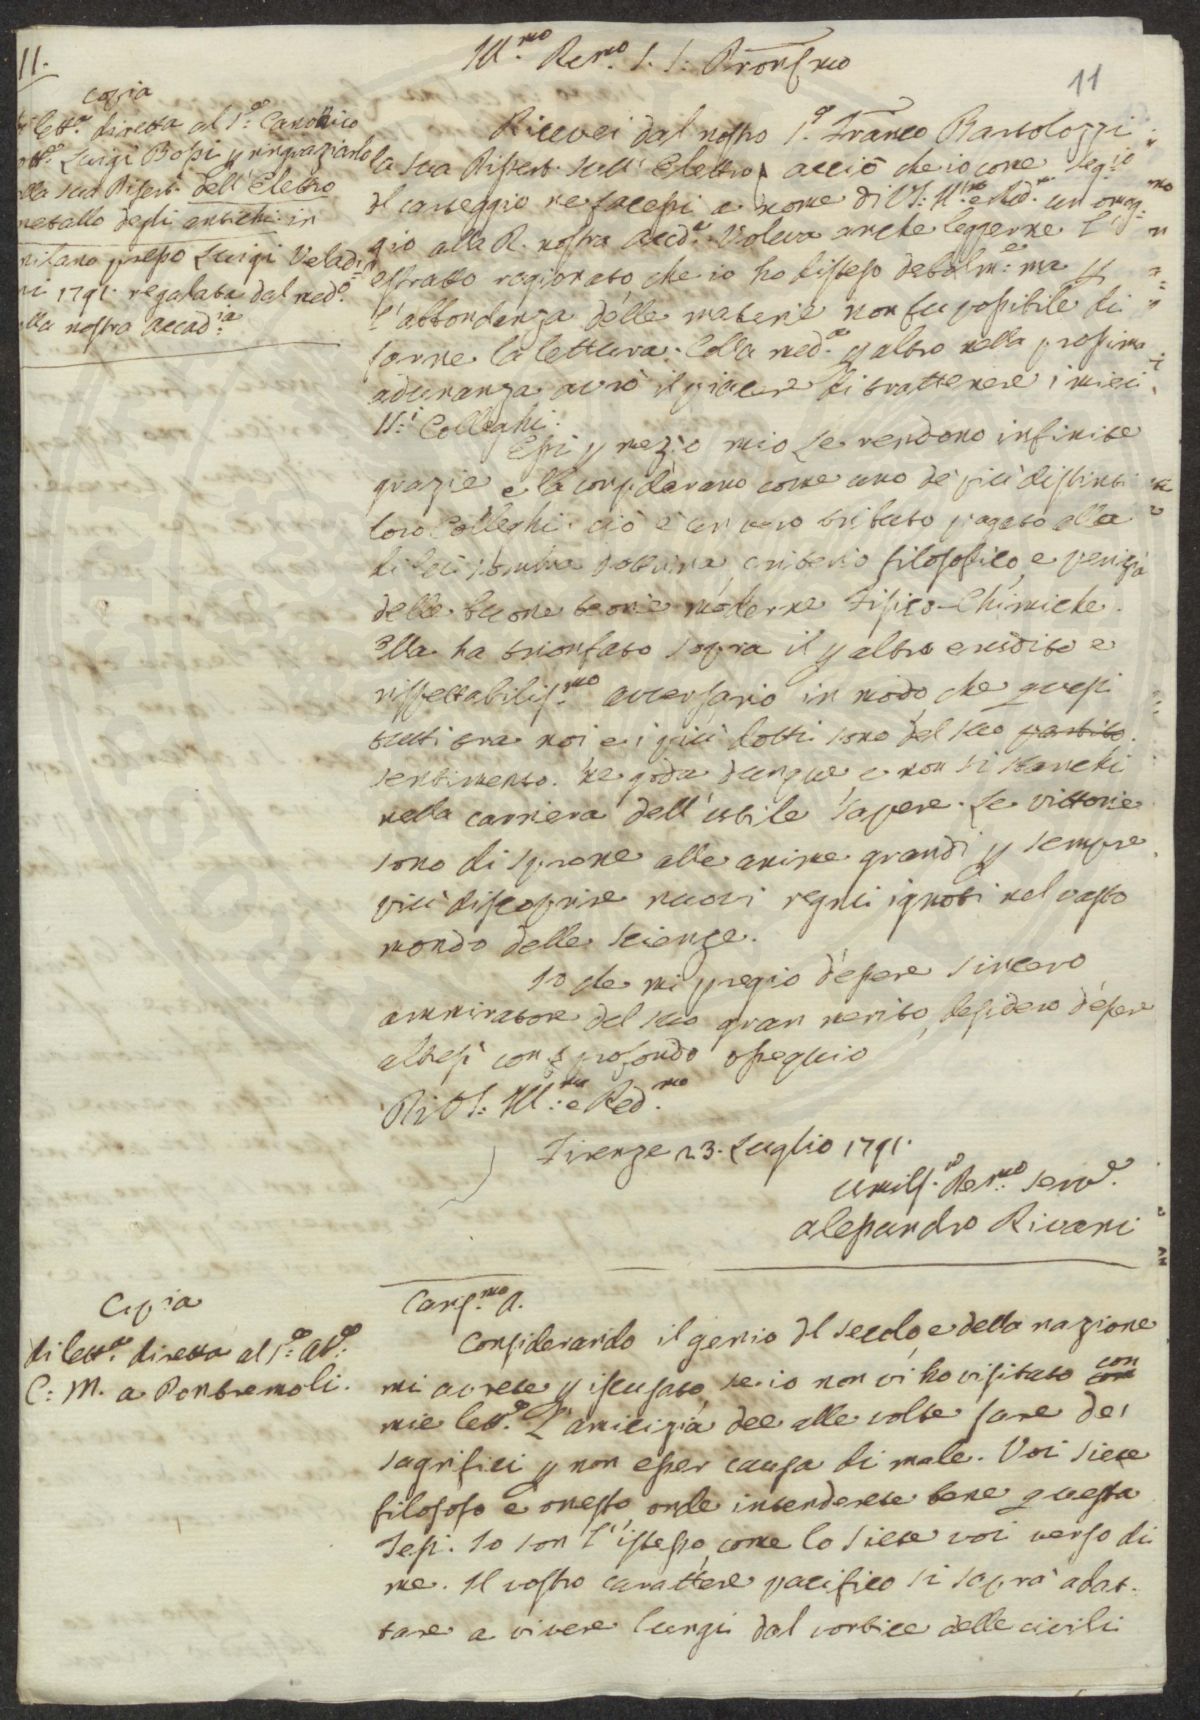 11.
Ill.mo Re.mo S. S: Pron. mo
11
Copia
di lett.a diretta al S.e Canonico
Luigi Bossi p ringraziarlo
della sua Dissert. dell'Elettro
metallo degli antichi: in
Milano presso Luigi Veladi
ni 1791. regalata dal med.o
alla nostra accad.ia
Ricevei dal nostro S.e Franco Bartolozzi
la sua Dissert. sull'Elettro, acciò che io come Seg.io
del carteggio ne facessi a nome di V.S. Ill.ma e Red.ma un omag-
gio alla R. nostra Accd.a. Voleva anche leggerne l'
estratto ragionato che io ho disteso debolm.e: ma p
l'abbondanza delle materie non fu possibile di
farne la lettura. Colla med.a p altro nella prossima
adunanza avrò il piacere di trattenere i miei
Ill.i Colleghi.
Essi p mezzo mio Le rendono infinite
grazie e la considerano come uno de più distinti
loro Colleghi. ciò è un vero tributo pagato alla
di lei somma dottrina, criterio filosofico, e perizia
delle buone teorie moderne Fisico-Chimiche.
Ella ha trionfato sopra il p altro erudito e
rispettabiliss.mo avversario in modo che quasi
tutti tra noi e i più dotti sono del suo partito.
sentimento. Ne goda dunque e non si stanchi
nella carriera dell'utile sapere. Le vittorie
sono di sprone alle anime grandi p sempre
più discoprire nuovi regni ignoti nel vasto
mondo delle scienze.
Io che mi pregio d'essere sincero
ammiratore del suo gran merito, desidero d'essere
altresì con profondo ossequio
Di VS: Ill.ma e Red.ma
Firenze 23. Luglio 1791.
Umiliss.o De.mo Serv.e
Alessandro Rivani
Copia
di lett.a diretta al S.e Ab.e
C: M. a Pontremoli.
Cariss.mo A.
Considerando il genio del secolo, e della nazione
mi avrete p iscusato se io non vi ho visitato con
mie lett.e L'amicizia dee alle volte fare dei
sagrifici p non esser causa di male. Voi siete
filosofo e onesto onde intenderete bene questa
Tesi. Io son l'istesso come lo siete voi verso di
me. Il vostro carattere pacifico si saprà adat-
tare a vivere lungi dal vortice delle civili